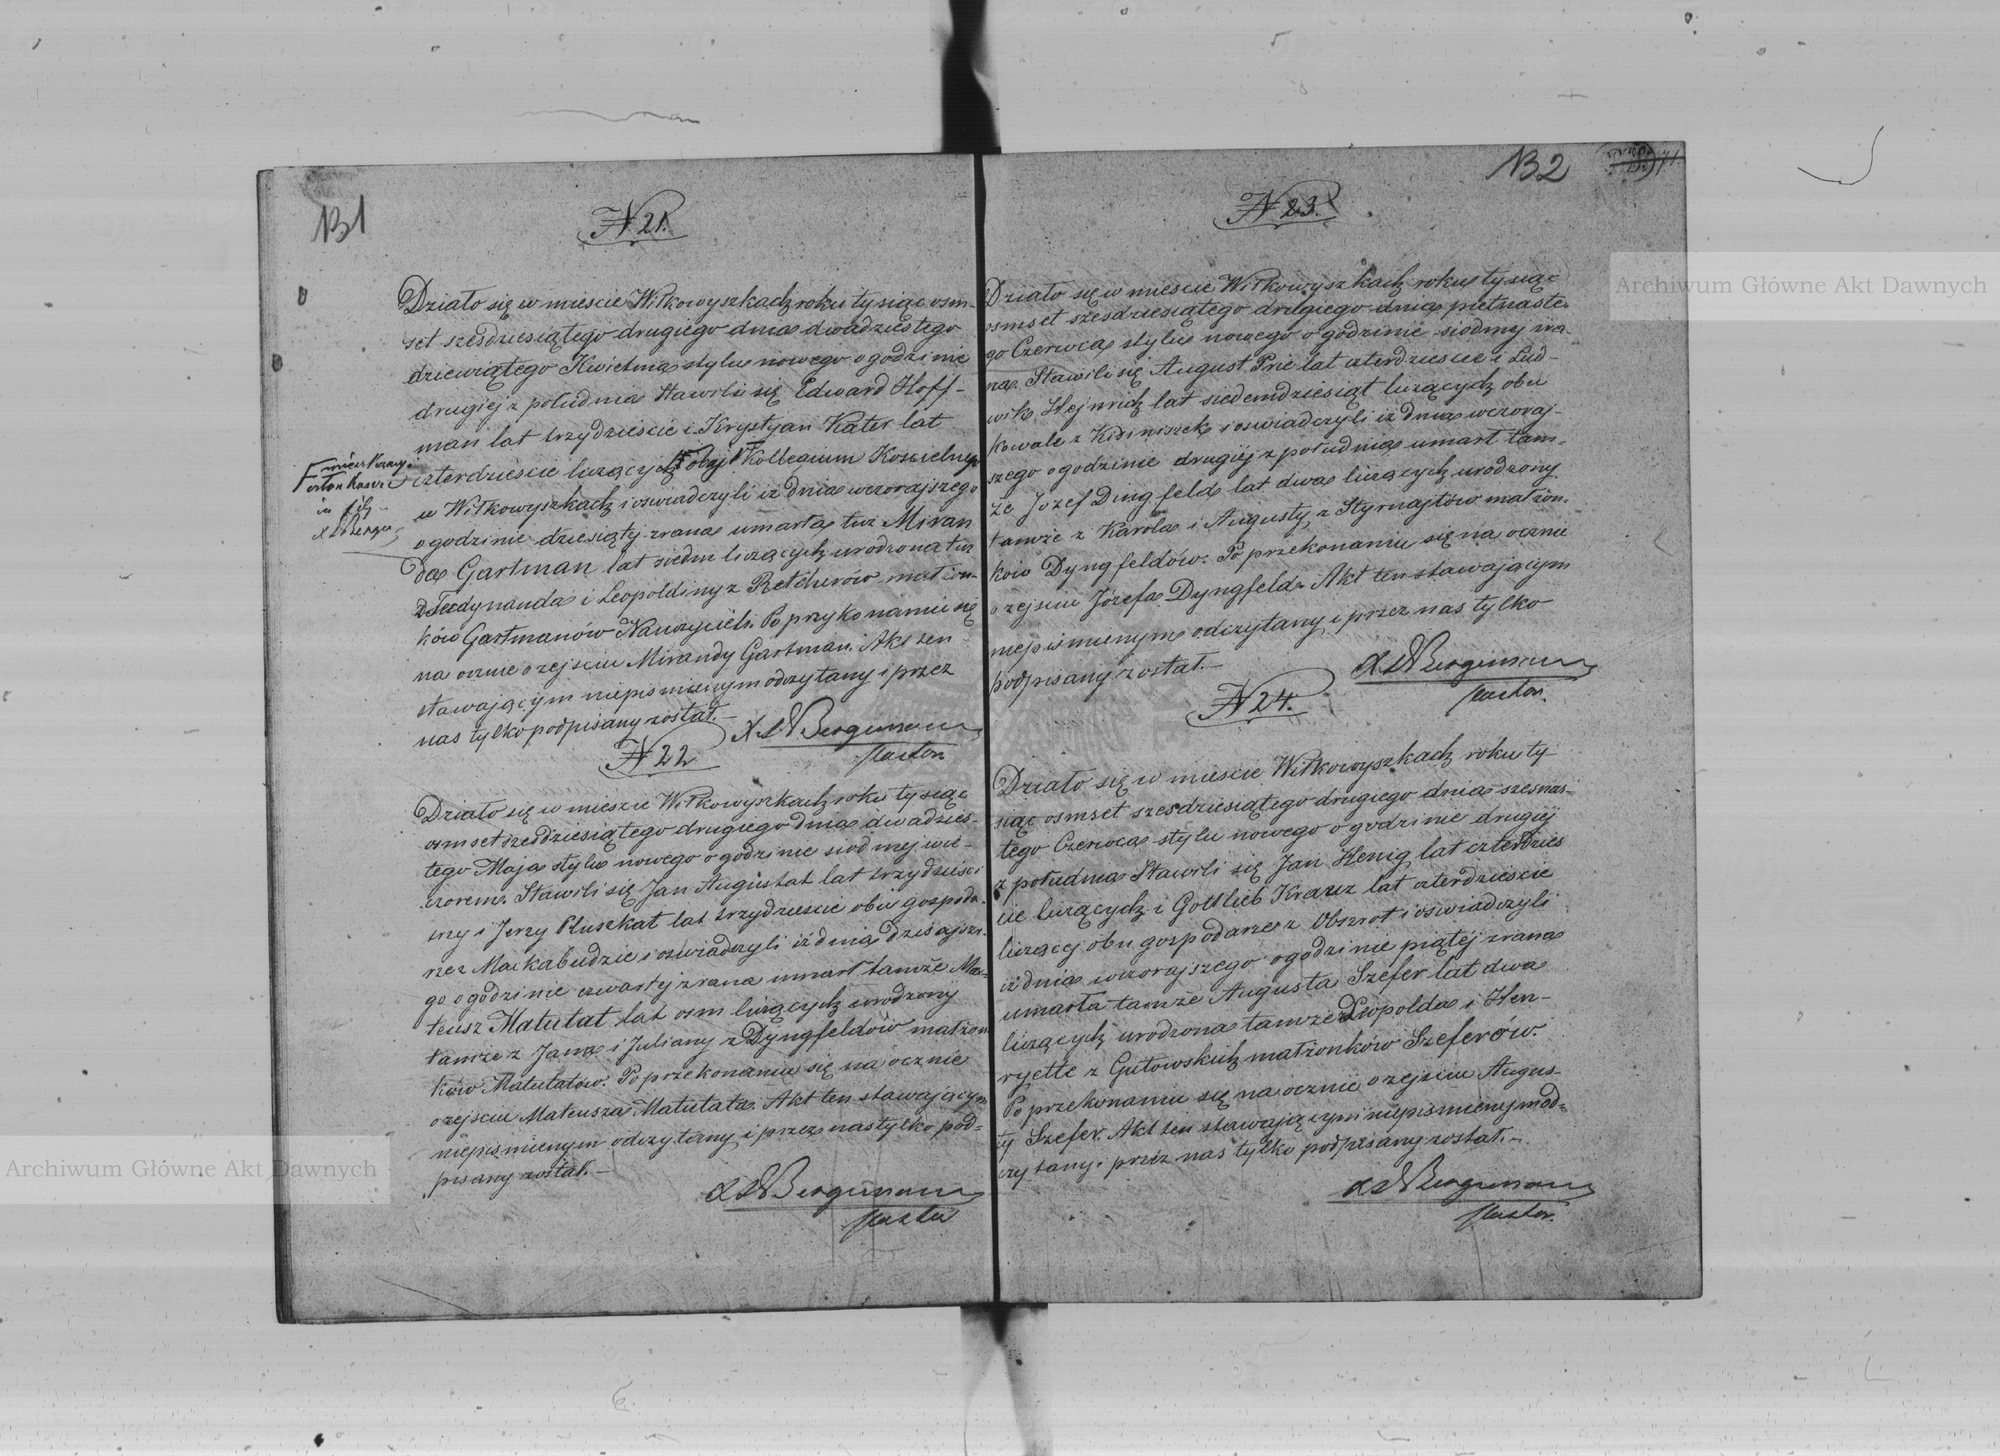 131
N 21.
Działo się w mieście Wiłkowyszkach roku tysiąc osm-
set sześdziesiątego drugiego dnia dwadziestego
dziewiątego Kwietnia stylu nowego o godzinie
drugiej z południa Stawili się Edward Hoff-
man lat trzydzieście i Krystyan Kater lat
czterdzieście liczących obaj Kollegium Kościelnego
w Wiłkowyszkach i oswiadczyli iż dnia wczorajszego
o godzinie dziesiąty zrana umarła tuż Miran
da Gartman lat siedm licząca urodzona tuż
z Ferdynanda i Leopoldiny z Retcherów małżon-
ków Gartmanów Nauczycieli. Po przykonaniu się
na ocznie o zejściu Mirandy Gartman. Akt ten
stawającym niepismienym odczytany i przez
nas tylko podpisany został.—
X. L. Bergemann
Pastor
N 22
Działo się w mieście Wiłkowyszkach roku tysiąc
osmset sześdziesiątego drugiego dnia dwadzies-
tego Maja stylu nowego o godzinie siodmej wie-
czorem. Stawili się Jan Augustat lat trzydzieści
i Jerzy Pluszkat lat trzydzieście obu gospoda-
rze z Maćkabudzie i oswiadczyli iż dnia dzisiajsze-
go o godzinie czwartej zrana umarł tamże Ma-
teusz Matutat lat osm liczących urodzony
tamże z Jana i Juliany z Dyngfeldów małżon
ków Matutatów. Po przekonaniu się na ocznie
o zejściu Mateusza Matutata. Akt ten stawającym
niepismienym odczytany i przez nas tylko pod-
pisany został.—
X L Bergemann
Pastor
132
N 23.
Działo się w mieście Wiłkowyszkach roku tysiąc
osmset szesdziesiątego drugiego dnia pietnaste-
go Czerwca stylu nowego o godzinie siodmej zra-
na. Stawili się August Prie lat czterdzieście i Lud-
wik Hejnrich lat siedemdziesiąt liczących obu
kowale z i oswiadczyli iż dnia wczoraj-
szego o godzinie drugiej z południa umarł tam-
że Jozef Dingfeld lat dwa liczących urodzony
tamże z Karola i Augusty z Styrnajtów małżon-
ków Dyngfeldów. Po przekonaniu się na ocznie
o zejściu Józefa Dyngfelda. Akt ten stawającym
niepiśmienym odczytany i przez nas tylko
podpisany został.—
X L Bergemann
Pastor.
N 24.
Działo się w mieście Wiłkowyszkach roku ty-
siąc osmset szesdziesiątego drugiego dnia szesnas-
tego Czerwca stylu nowego o godzinie drugiej
z południa Stawili się Jan Henig lat czterdzieś
cie liczących i Gottlieb Krauz lat czterdzieście
liczący obu gospodarze z Obszrot i oswiadczyli
iż dnia wczorajszego o godzinie piątej zrana
umarła tamże Augusta Szefer lat dwa
liczących urodzona tamże z Leopolda i Hen-
ryette z Gutowskich małżonków Szeferów.
Po przekonaniu się na ocznie o zejściu Augus-
ty Szefer. Akt ten stawającym niepismienym od-
czytany i przez nas tylko podpisany został.—
X L Bergemann
Pastor.
Archiwum Główne Akt Dawnych
Archiwum Główne Akt Dawnych